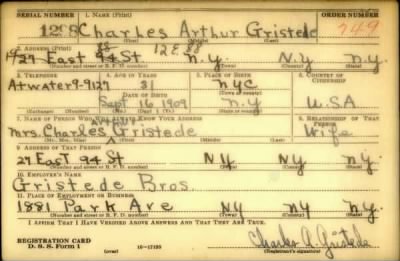 SERIAL NUMBER 1. NAME (Print) ORDER NUMBER
1298 Charles Arthur Gristede 749
(First) (Middle) (Last)
2. ADDRESS (Print) 12 E 88
27 East 94 St N.Y. N.Y. N.Y.
(Number and street or R. F. D. number) (Town) (County) (State)
3. TELEPHONE 4. AGE IN YEARS 5. PLACE OF BIRTH 6. COUNTRY OF CITIZENSHIP
Atwater 9-9127 31 NYC
DATE OF BIRTH (Town or county)
Sept 16 1909 N.Y U.S.A
(Exchange) (Number) (Mo.) (Day) (Yr.) (State or country)
7. NAME OF PERSON WHO WILL ALWAYS KNOW YOUR ADDRESS 8. RELATIONSHIP OF THAT PERSON
Arthur
Mrs. Charles Gristede Wife
(Mr., Mrs., Miss) (First) (Middle) (Last)
9. ADDRESS OF THAT PERSON
27 East 94 St NY NY NY.
(Number and street or R. F. D. number) (Town) (County) (State)
10. EMPLOYER'S NAME
Gristede Bros
11. PLACE OF EMPLOYMENT OR BUSINESS
1881 Park Ave NY NY NY.
(Number and street or R. F. D. number) (Town) (County) (State)
I AFFIRM THAT I HAVE VERIFIED ABOVE ANSWERS AND THAT THEY ARE TRUE.
REGISTRATION CARD
D. S. S. Form 1 (over) 16-17105 Charles A. Gristede
(Registrant's signature)